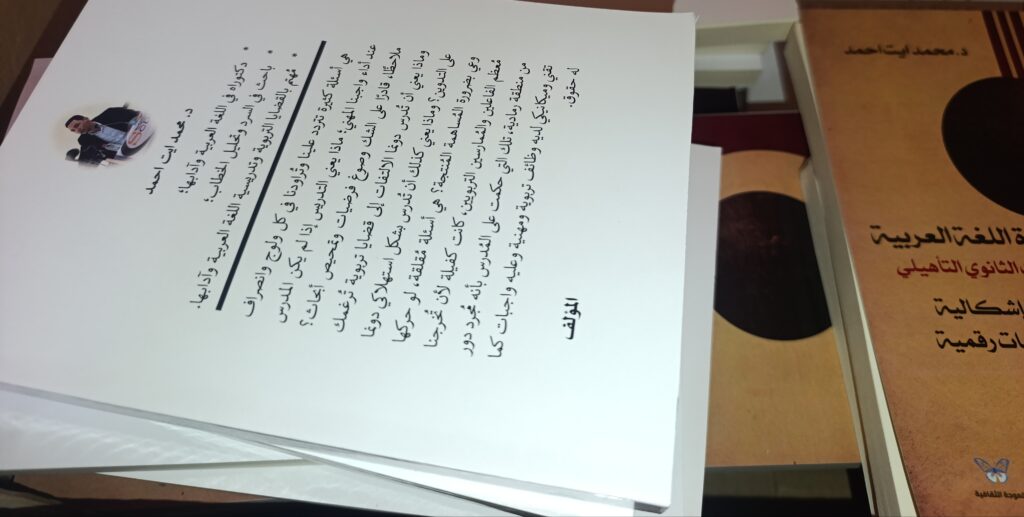 د. محمد ايت احمد
* دكتوراه في اللغة العربية وآدابها؛
* باحث في السرد وتحليل الخطاب؛
* مُهتم بالقضايا التربوية وتدريسية اللغة العربية وآدابها.
هي أسئلة كثيرة تتردد علينا وتُراودنا في كل ولوج وانصراف
عند أداء واجبنا المهني؛ ماذا يعني التدريس إذا لم يكن المدرس
ملاحظًا، قادرًا على الشك وصوغ فرضيات وتمحيص أبحاث؟
وماذا يعني أن تُدرس دونما الالتفات إلى قضايا تربوية تُرغمك
على التدوين؟ وماذا يعني كذلك أن تُدرس بشكل استهلاكي دونما
وعي بضرورة المُساهمة المُنتجة؟ هي أسئلة مُقلقة، لو حركها
مُعظم الفاعلين والمُمارسين التربويين، كانت كفيلة لأن تُخرجنا
من منطقة رمادية، تلك التي حكمت على المُدرس بأنه مُجرد دور
تقني وميكانيكي لديه وظائف تربوية ومهنية وعليه واجبات كما
له حقوق.
المؤلف
د. محمد ايت احمد
اللغة العربية
الثانوي التأهيلي
إشكالية
رقمية
الثقافية